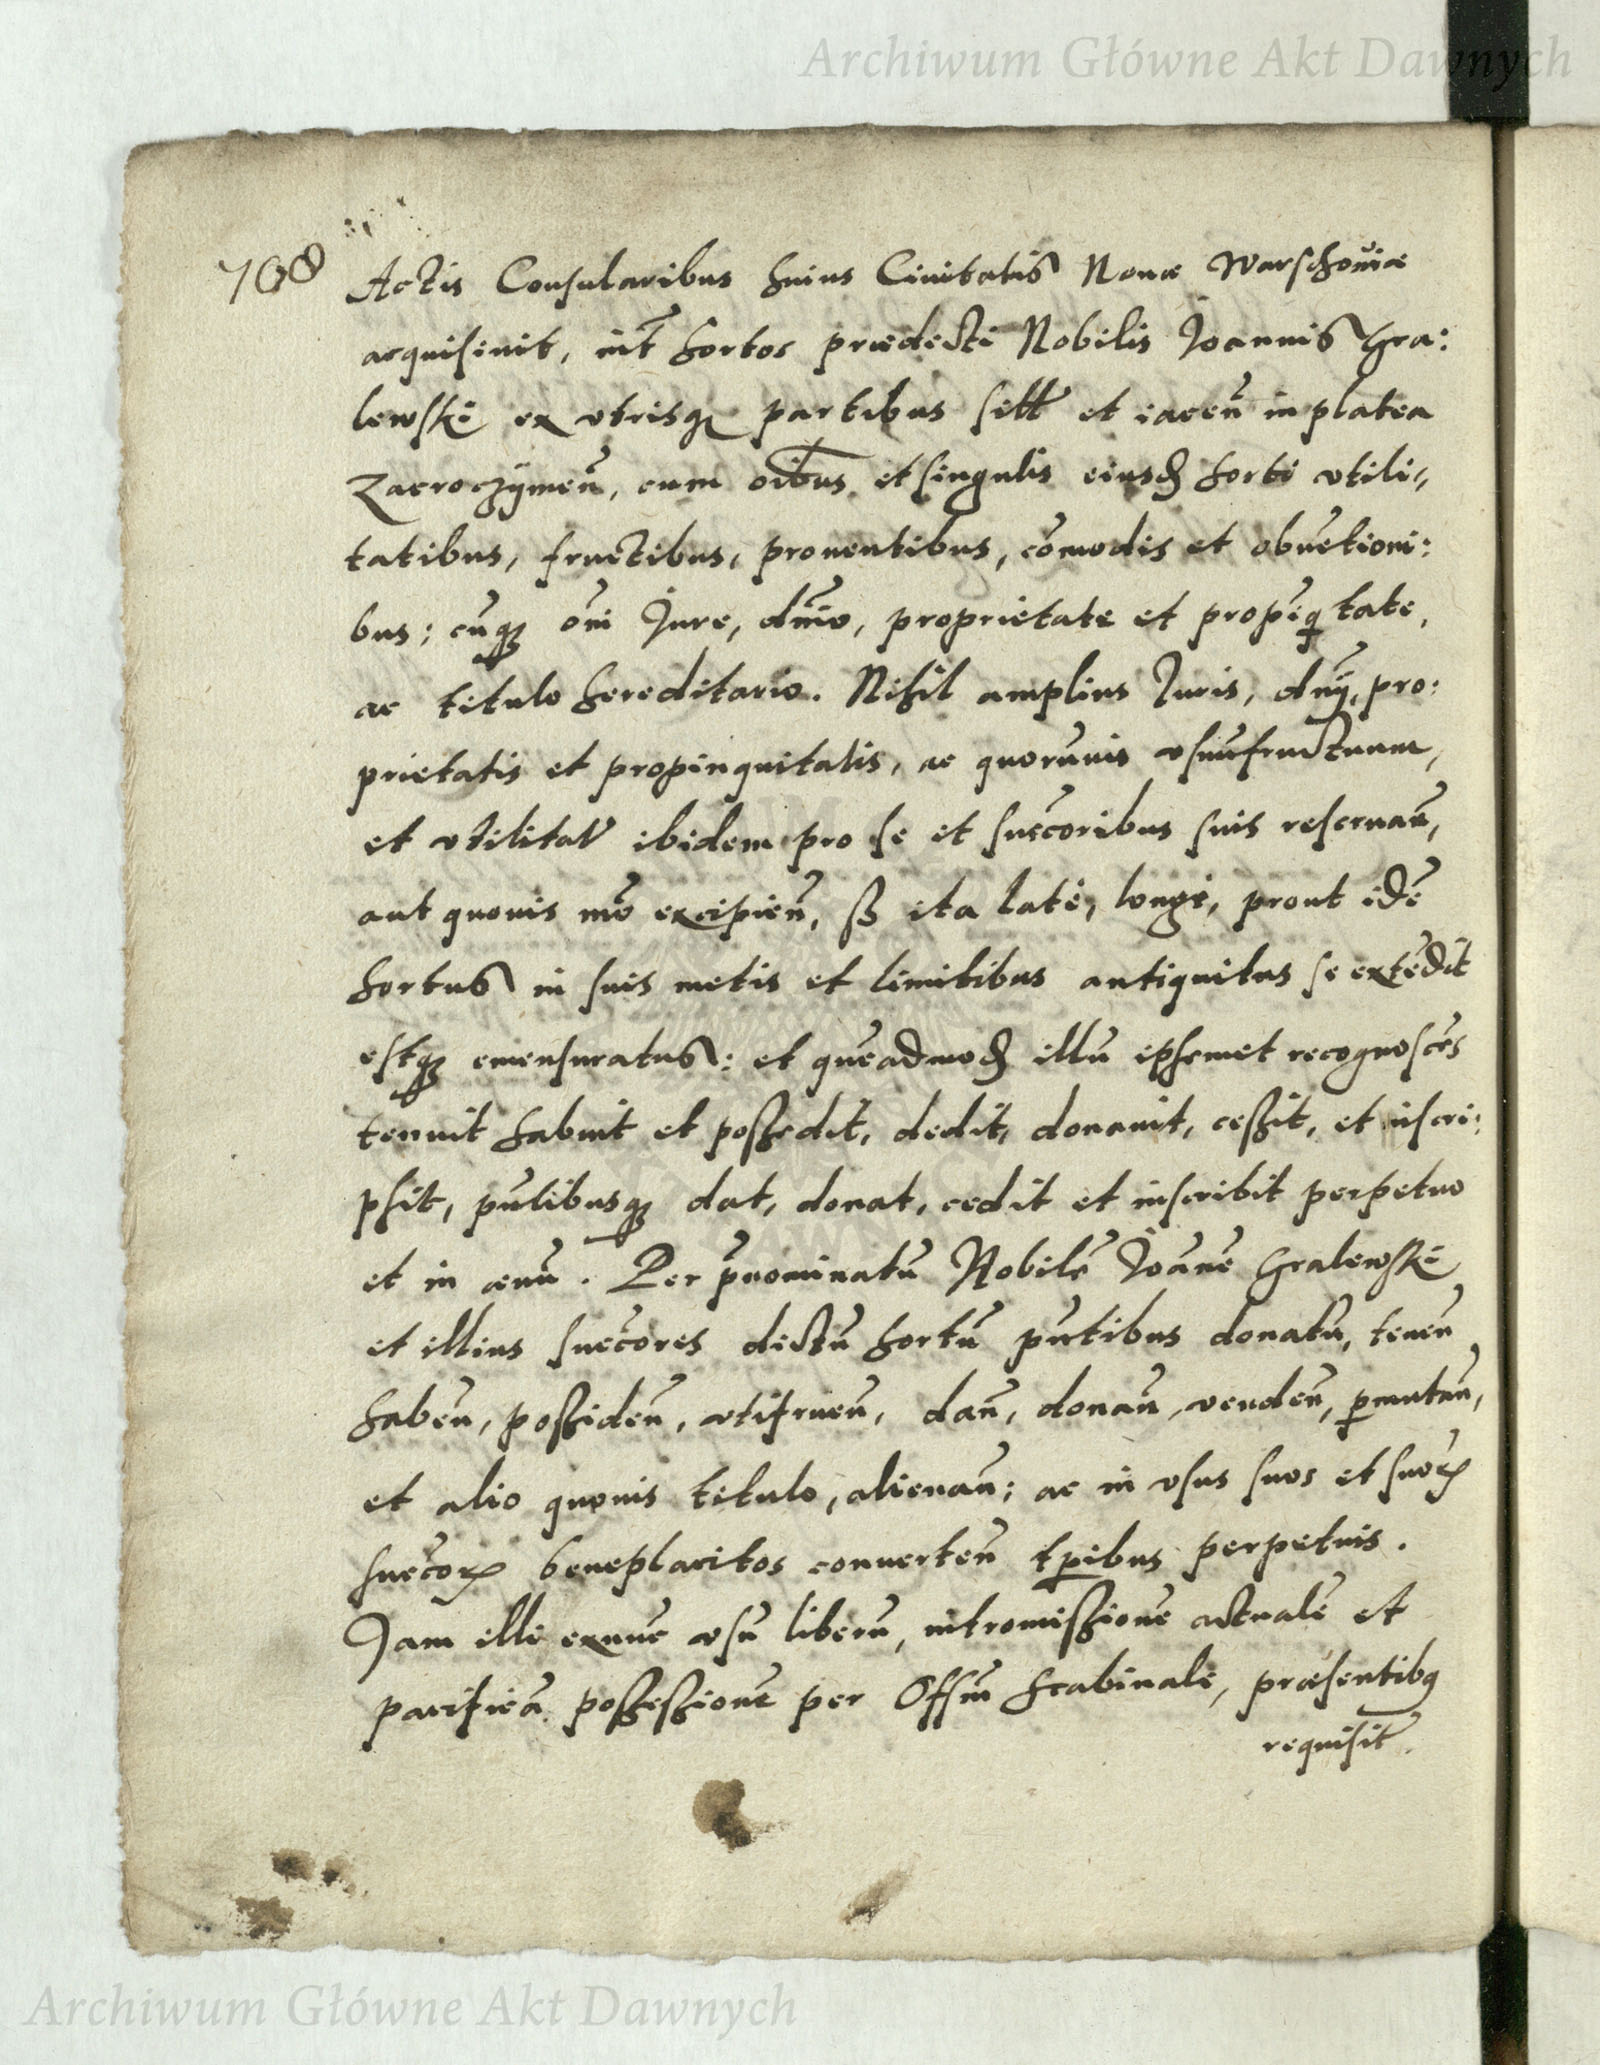 Archiwum Główne Akt Dawnych
708
Actis Consularibus huius Ciuitatis Nouæ Warschouiæ
acquisiuit, int̃ hortos prædicti Nobilis Joannis Gra:
lewski ex vtrisq₃ partibus sitũ et iaceñ in platea
Zacroczÿmeñ, cum oĩbus et singulis eiusđ horti vtili-
tatibus, fructibus, prouentibus, cõmodis et obuẽtioni:
bus; cũq₃ oĩi Jure, dñio, proprietate et propĩq̨tate,
ac titulo hereditario. Nihil amplius Juris, dñij, pro:
prietatis et propinquitatis, ac quorũuis vsuũfructuum,
et vtilitat̃ ibidem pro se et succ̃oribus suis reseruañ,
aut quouis mõ excipień, sꝫ ita latè, longè, prout idẽ
hortus in suis metis et limitibus antiquitus se extẽdit
estq₃ emensuratus: et quẽadmođ illũ ipsemet recognoscẽs
tenuit habuit et possedit, dedit, donauit, cessit, et inscri:
psit, pñtibusq₃ dat, donat, cedit et inscribit perpetuo
et in æuũ. Per p̃nominatũ Nobilẽ Joãnẽ Gralewski
et illius succ̃ores dictũ hortũ pñtibus donatũ, teneñ
habeñ, possideñ, vtifrueñ, dañ, donañ, vendeñ, p̱mutañ,
et alio quouis titulo, alienañ; ac in vsus suos et suoꝝ
succ̃oꝝ beneplacitos conuerteñ tp̱ibus perpetuis.
Jam illi exnunc vsũ liberũ, intromissionẽ actualẽ et
pacificã possessionẽ per Offm̃ Scabinale, præsentibq
requisit̃.
Archiwum Główne Akt Dawnych